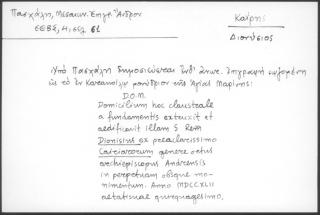 Πασχάλη, Μεσαιων. Ἐπιγρ. Ἄνδρου
ΕΕΒΣ, Η, σελ. 61
Καΐρης
Διονύσιος
Ὑπὸ Πασχάλη δημοσιεύεται ἐπιγραφὴ σωζομένη
εἰς τὸ ἐν μονύδριον τῆς Ἁγίας Μαρίνης:
D.O.M.
Domicilium hoc claustrale
a fundamentis extruxit et
aedificavit illam S Rem
Dionisius ex preaclarissimo
Cairiarorum genere ortus
archiepiscopus Andrensis
in perpetuam obsque mo-
nimentum. Anno MDCCXLII
aetatisuae quinquagesimo.